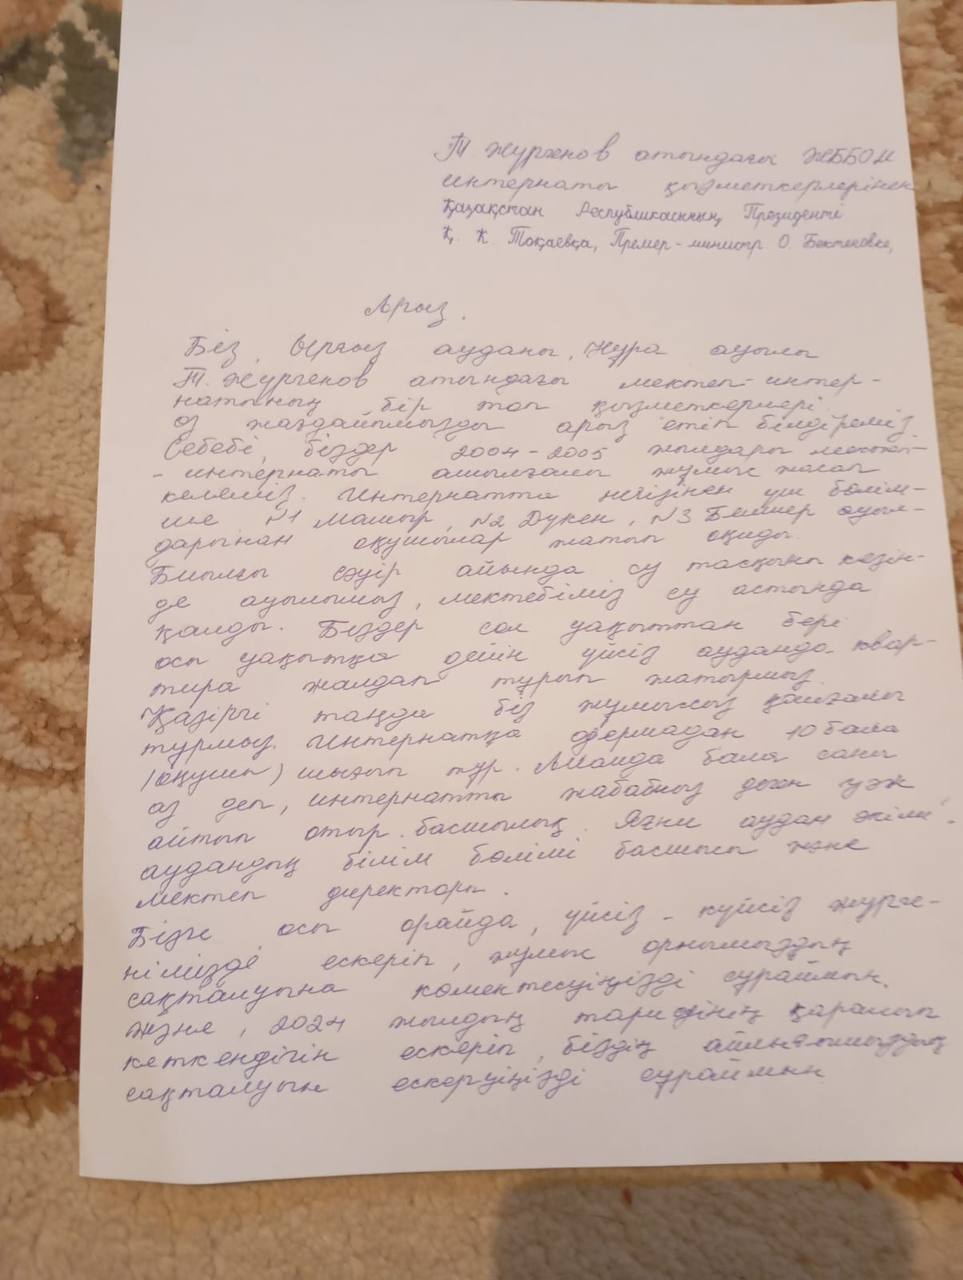 Т Жургенов атындағы ЖББОМ
интернаты қызметкерлерінен
Қазақстан Республикасының Президенті
Қ. К. Тоқаевқа, Премер-министр О. Бектеновке,
Арыз.
Біз, Ырғыз ауданы, Нұра ауылы
Т. Жургенов атындағы мектеп-интер-
натының бір топ қызметкерлері
өз жағдайымызды арыз етіп білдіреміз.
Себебі, біздер 2004-2005 жылдары мектеп-
- интернаты ашылғалы жұмыс жасап
келеміз. Интернатта негізінен үш бөлім-
ше №1 Мамыр, №2 Дүкен, №3 Белшер ауыл-
дарынан оқушылар жатып оқиды.
Биылғы сәуір айында су тасқыны кезін-
де ауылымыз, мектебіміз су астында
қалды. Біздер сол уақыттан бері
осы уақытқа дейін үйсіз ауданда квар-
тира жалдап тұрып жатырмыз.
Қазіргі таңда біз жұмыссыз қалғалы
тұрмыз. Интернатқа формадан 10 бала
(оқушы) шығып тұр. Алайда бала саны
аз деп, интернатты жабабыз деген уәж
айтып отыр басшылық. Яғни аудан әкімі,
ауданның білім бөлімі басшысы және
мектеп директоры.
Бізге осы орайда, үйсіз-күйсіз жүрге-
німізде ескеріп, жұмыс орнымыздың
сақталуына көмектесуіңізді сұраймын.
Және, 2024 жылдың тарифінің қаралып
кеткендігін ескеріп, біздің айлығымыздың
сақталуын ескеруіңізді сұраймын